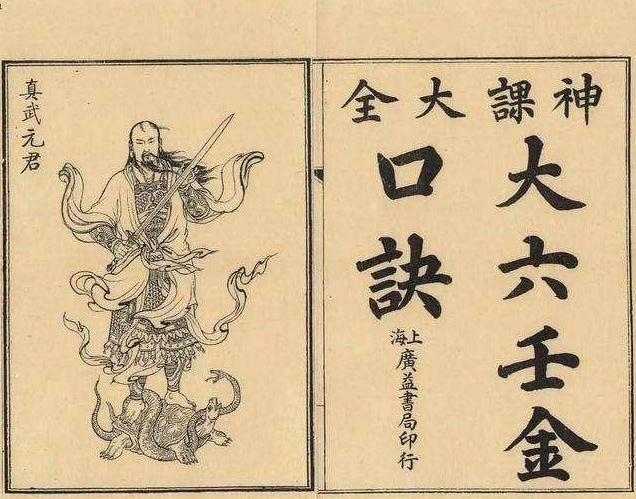 神課大全
大六壬金
口訣
上海廣益書局印行
真武元君